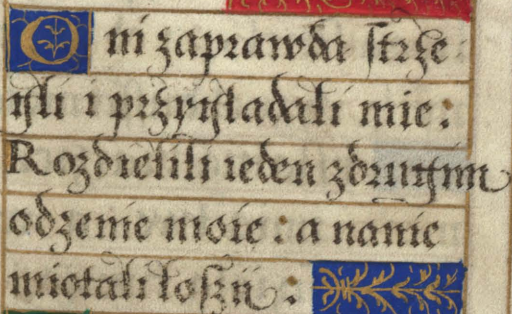 Oni zaprawda strze
gli i przygladali mie:
Rozdielili ieden zdrugim
odzenie moie: a nanie
miotali loszii: